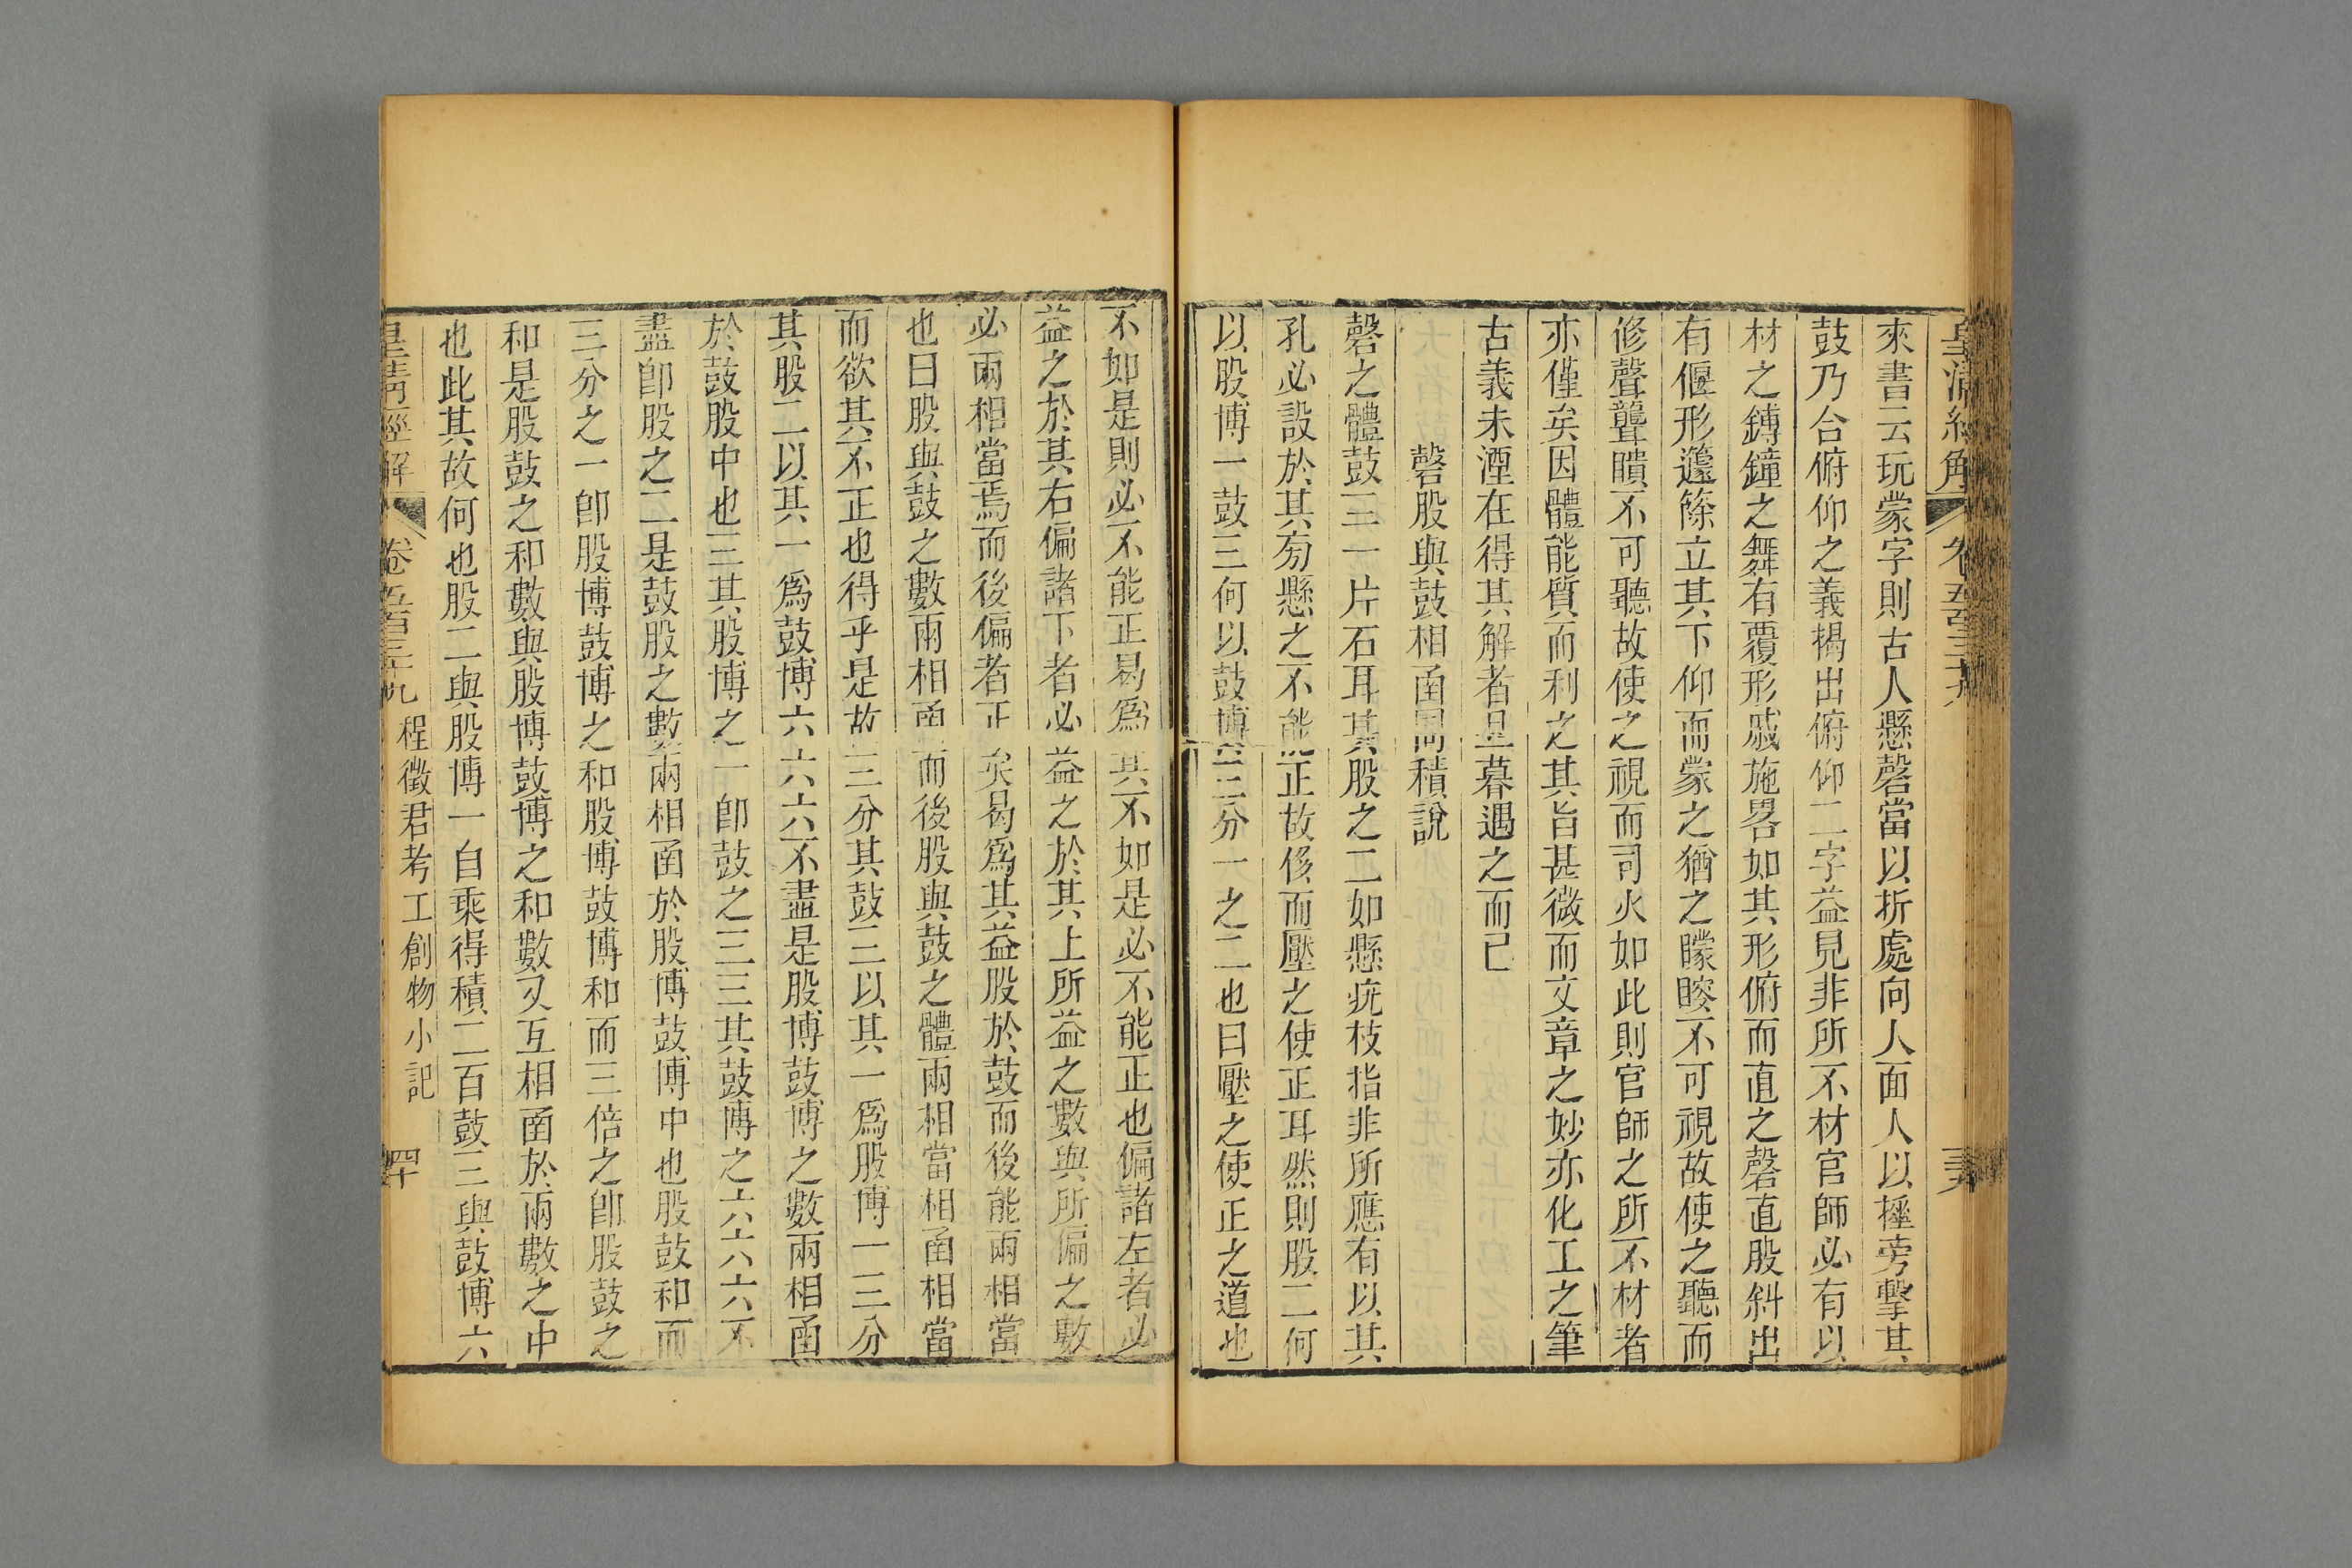 皇清經解
卷五百三十九
三九
來書云玩蒙字則古人懸磬當以折處向人面人以捶旁擊其
鼓乃合俯仰之義揭出俯仰二字益見非所不材官師必有以
材之鏄鐘之舞有覆形戚施畧如其形俯而直之磬直股斜出
有偃形籧篨立其下仰而蒙之猶之矇瞍不可視故使之聽而
修聲聾聵不可聽故使之視而司火如此則官師之所不材者
亦僅矣因體能質而利之其旨甚微而文章之妙亦化工之筆
古義未湮在得其解者旦暮遇之而已
磬股與鼓相函同積說
磬之體鼓三一片石耳其股之二如懸疣枝指非所應有以其
孔必設於其旁懸之不能正故侈而壓之使正耳然則股二何
以股博一鼓三何以鼓博三分一之二也曰壓之使正之道也
不如是則必不能正曷爲其不如是必不能正也偏諸左者必
益之於其右偏諸下者必益之於其上所益之數與所偏之數
必兩相當焉而後偏者正矣曷爲其益股於鼓而後能兩相當
也曰股與鼓之數兩相函而後股與鼓之體兩相當相函相當
而欲其不正也得乎是故三分其鼓三以其一爲股博一三分
其股二以其一爲鼓博六六六不盡是股博鼓博之數兩相函
於鼓股中也三其股博之一卽鼓之三三其鼓博之六六六不
盡卽股之二是鼓股之數兩相函於股博鼓博中也股鼓和而
三分之一卽股博鼓博之和股博鼓博和而三倍之卽股鼓之
和是股鼓之和數與股博鼓博之和數又互相函於兩數之中
也此其故何也股二與股博一自乘得積二百鼓三與鼓博六
皇清經解
卷五百三十九
程徵君考工創物小記
四十